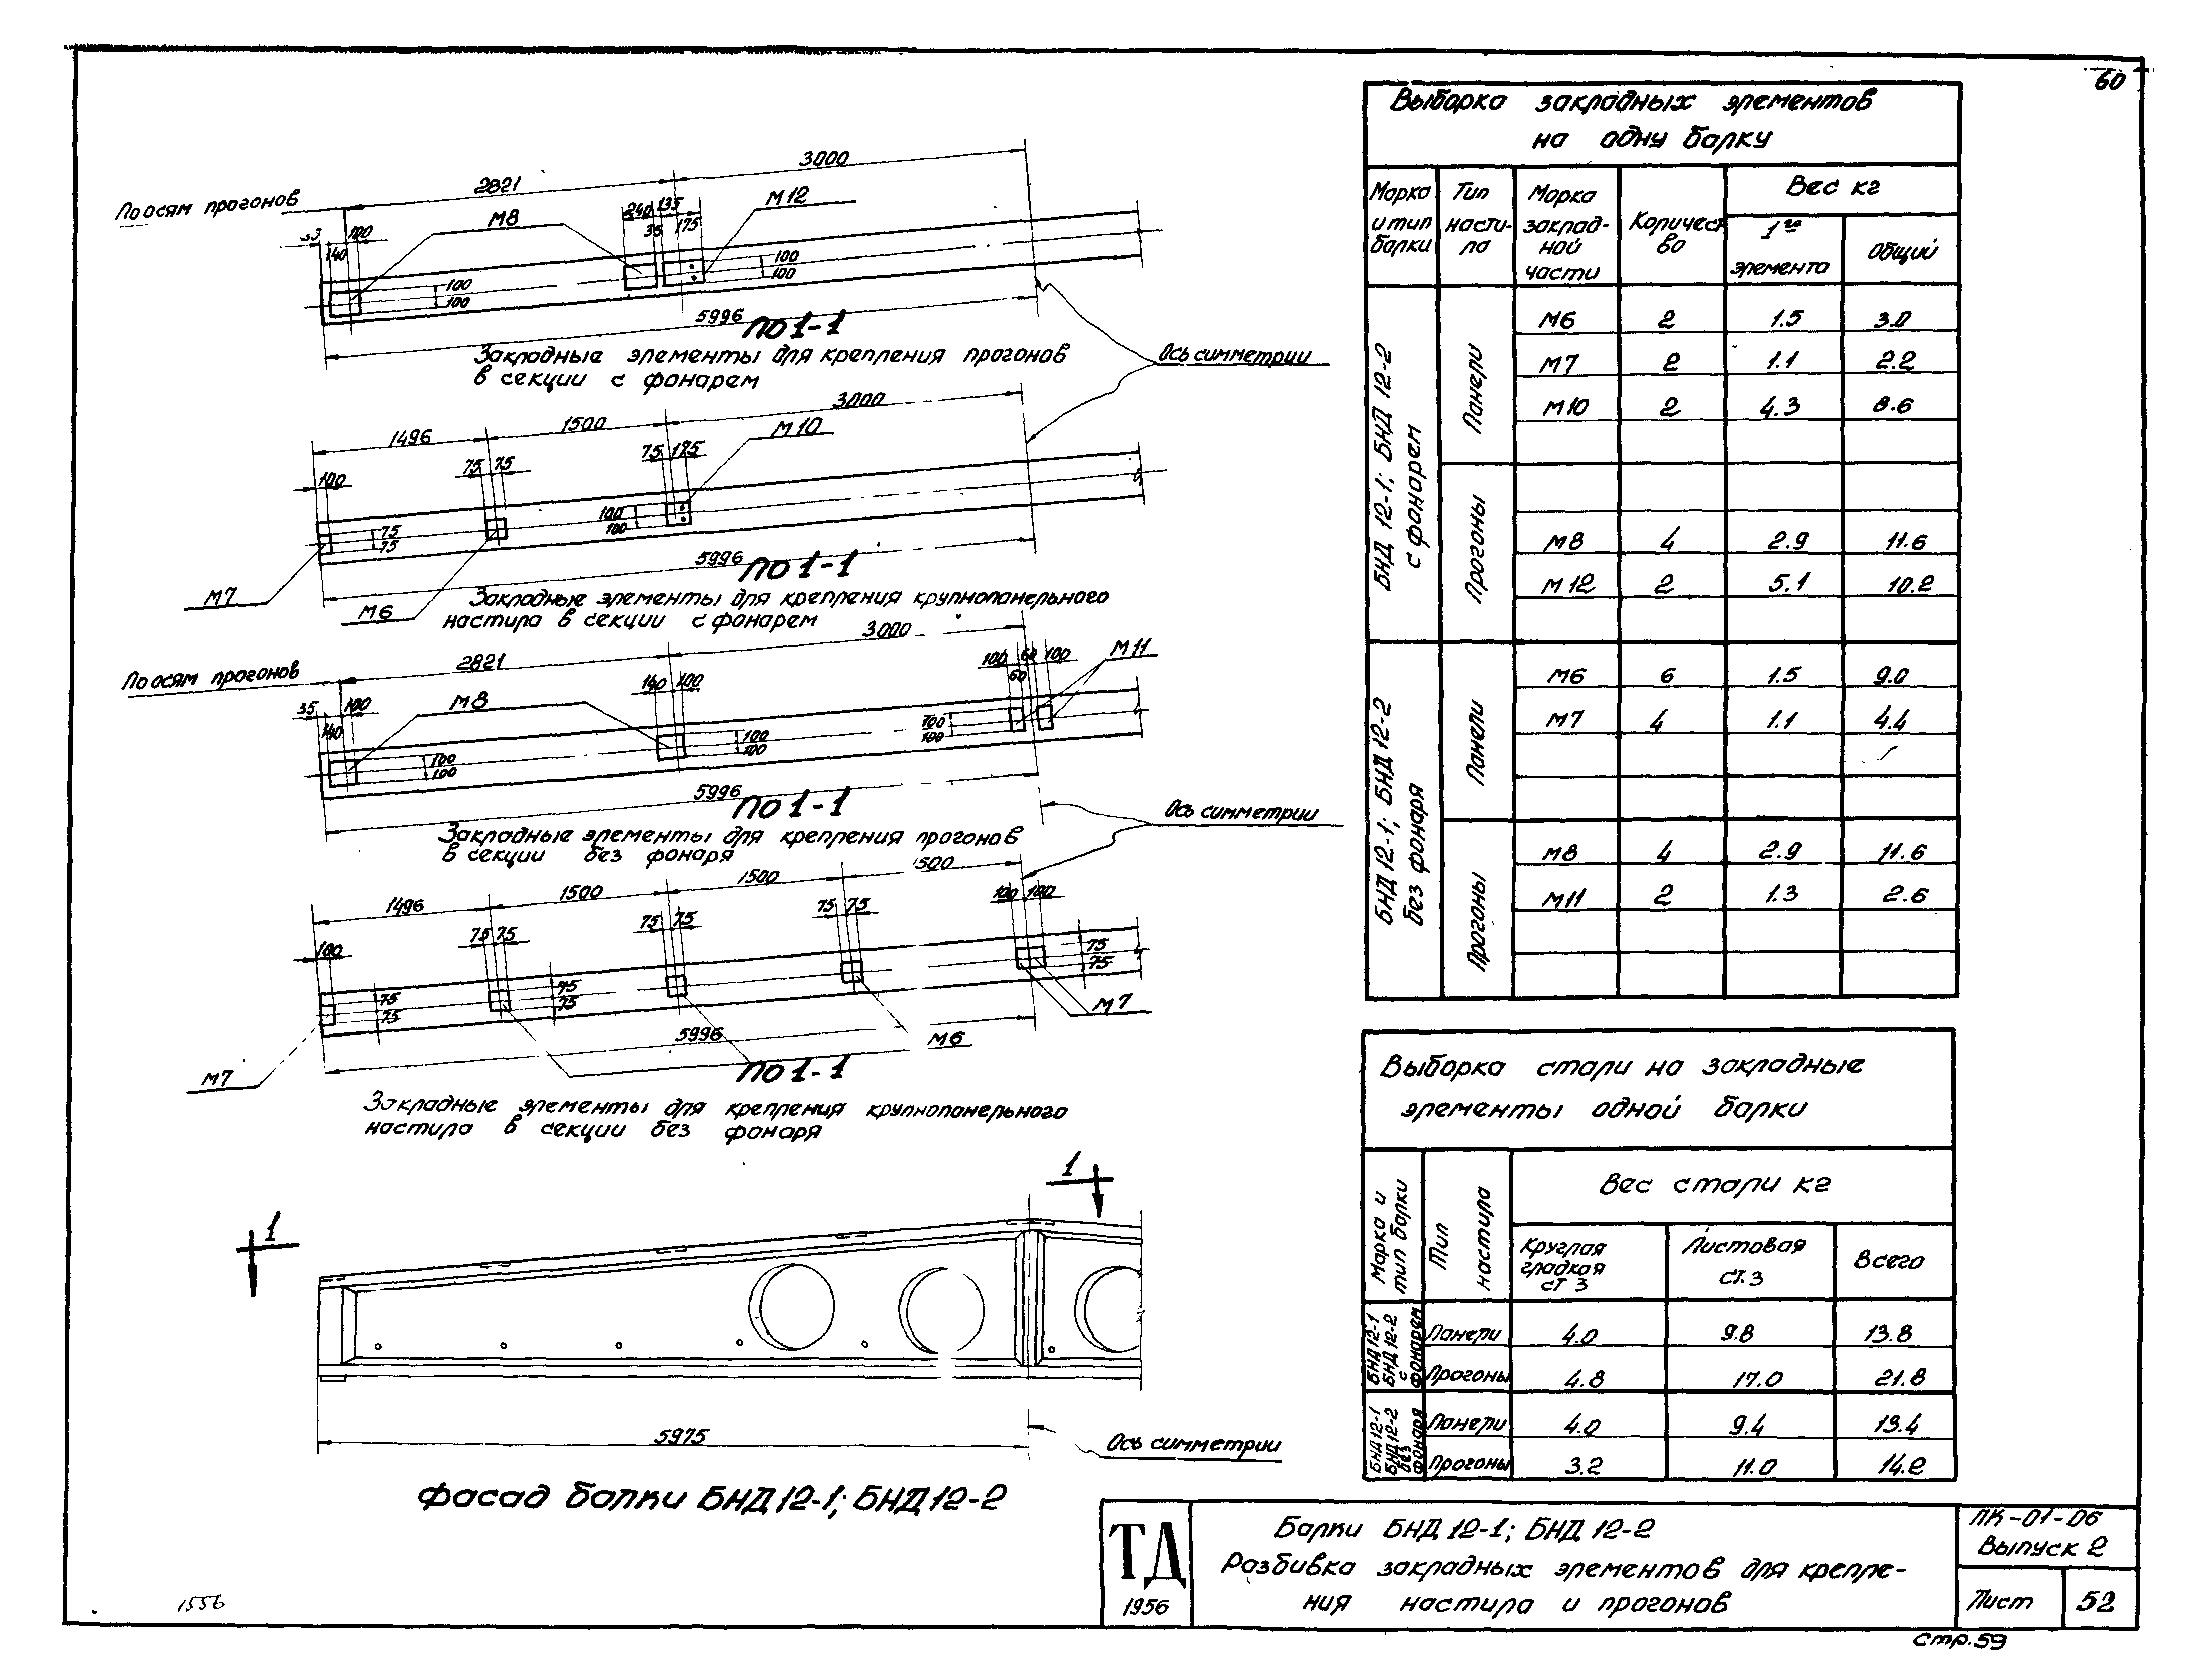 60
3000
2821
По осям прогонов
М8
240
135
М12
35
100
140
35
175
100
100
100
100
5996
По 1-1
Закладные элементы для крепления прогонов
в секции с фонарем
Ось симметрии
3000
1500
1496
М10
75 75
75 175
100
75
75
100
100
5996
По 1-1
М7
М6
Закладные элементы для крепления крупнопанельного
настила в секции с фонарем
3000
2821
По осям прогонов
М11
100 60 100
60
М8
140 100
35 100
140
100
100
100
100
100
100
5996
По 1-1
Закладные элементы для крепления прогонов
в секции без фонаря
Ось симметрии
1500
1500
1500
1496
100 100
75 75
75 75
75 75
100
75
75
75
75
75
75
М7
5996
М6
М7
По 1-1
Закладные элементы для крепления крупнопанельного
настила в секции без фонаря
1
1
5975
Ось симметрии
Фасад балки БНД 12-1; БНД 12-2
1556
Выборка закладных элементов
на одну балку
Марка и тип балки
Тип насти-ла
Марка заклад-ной части
Количест во
Вес кг
1го элемента
Общий
БНД 12-1; БНД 12-2 с фонарем
Панели
М6 2 1.5 3.0
М7 2 1.1 2.2
М10 2 4.3 8.6
Прогоны
М8 4 2.9 11.6
М12 2 5.1 10.2
БНД 12-1; БНД 12-2 без фонаря
Панели
М6 6 1.5 9.0
М7 4 1.1 4.4
Прогоны
М8 4 2.9 11.6
М11 2 1.3 2.6
Выборка стали на закладные
элементы одной балки
Марка и тип балки
Тип настила
Вес стали кг
Круглая гладкая ст 3
Листовая ст. 3
Всего
БНД 12-1 БНД 12-2 с фонарем
Панели 4.0 9.8 13.8
Прогоны 4.8 17.0 21.8
БНД 12-1 БНД 12-2 без фонаря
Панели 4.0 9.4 13.4
Прогоны 3.2 11.0 14.2
ТД
1956
Балки БНД 12-1; БНД 12-2
Разбивка закладных элементов для крепле-
ния настила и прогонов
ПК-01-06
Выпуск 2
Лист 52
Стр. 59